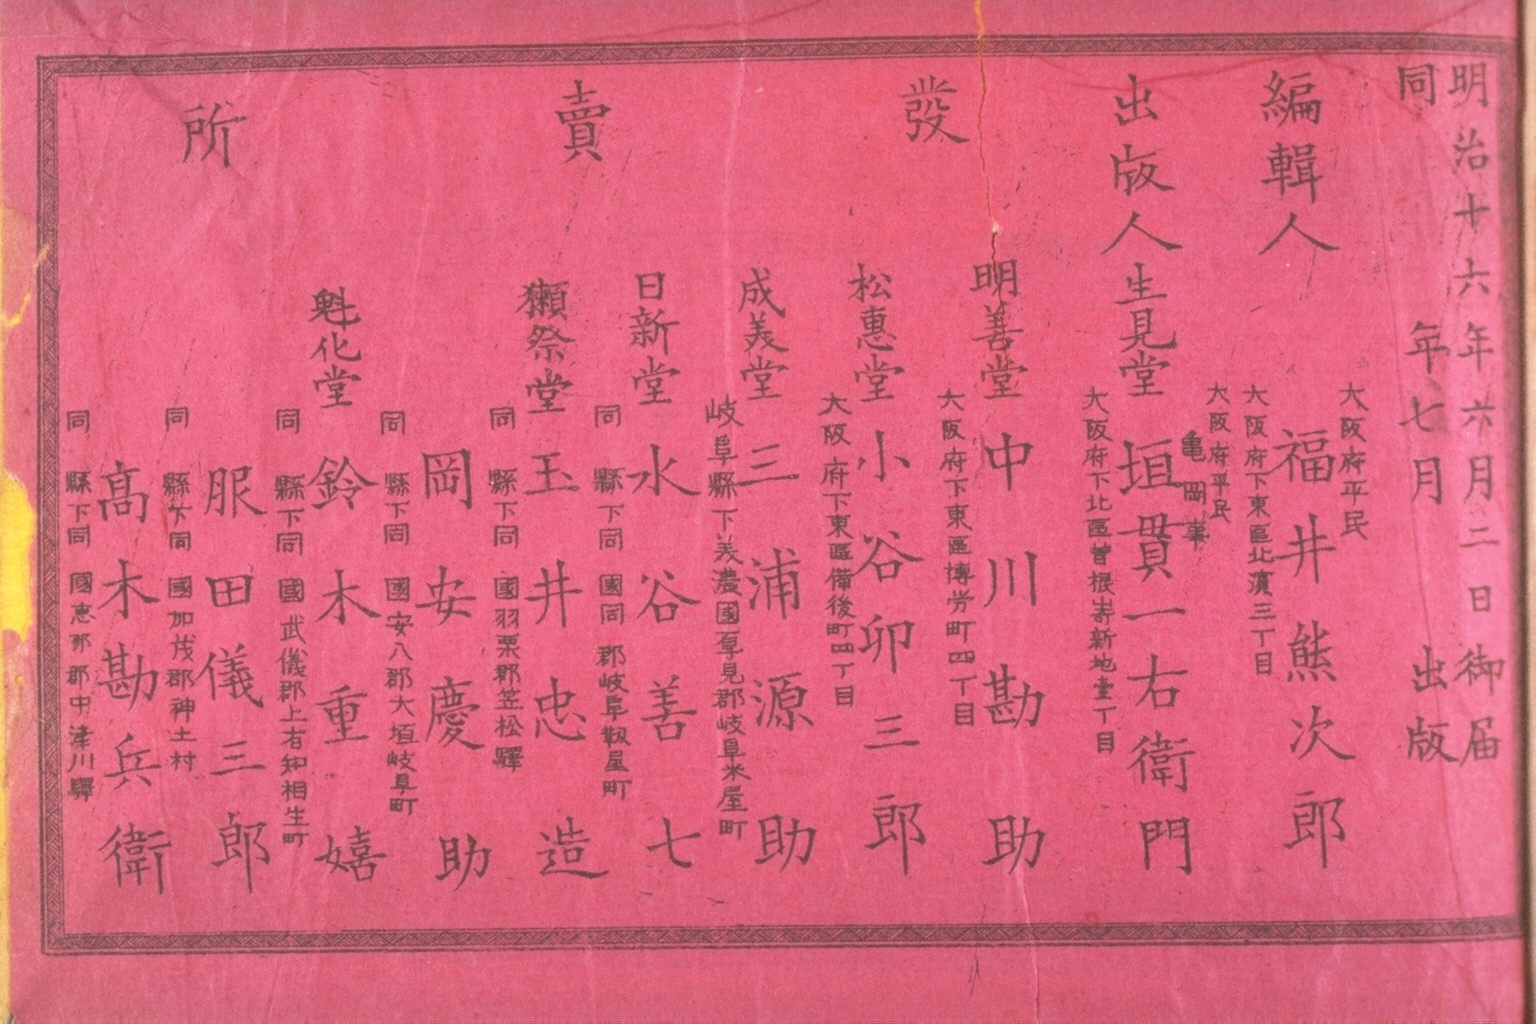 明治十六年六月二日御届
同年七月出版
編輯人
大阪府平民
福井熊次郎
大阪府下東區北濱三丁目
出版人
大阪府平民
亀岡事
生見堂 垣貫一右衛門
大阪府下北區曽根嵜新地壹丁目
發賣所
明善堂 中川勘助
大阪府下東區博労町四丁目
松惠堂 小谷卯三郎
大阪府下東區備後町四丁目
成美堂 三浦源助
岐阜縣下美濃國厚見郡岐阜米屋町
日新堂 水谷善七
同縣下同國同郡岐阜靱屋町
獺祭堂 玉井忠造
同縣下同國羽栗郡笠松驛
岡安慶助
同縣下同國安八郡大垣岐阜町
魁化堂 鈴木重嬉
同縣下同國武儀郡上有知相生町
服田儀三郎
同縣下同國加茂郡神土村
髙木勘兵衛
同縣下同國恵那郡中津川驛